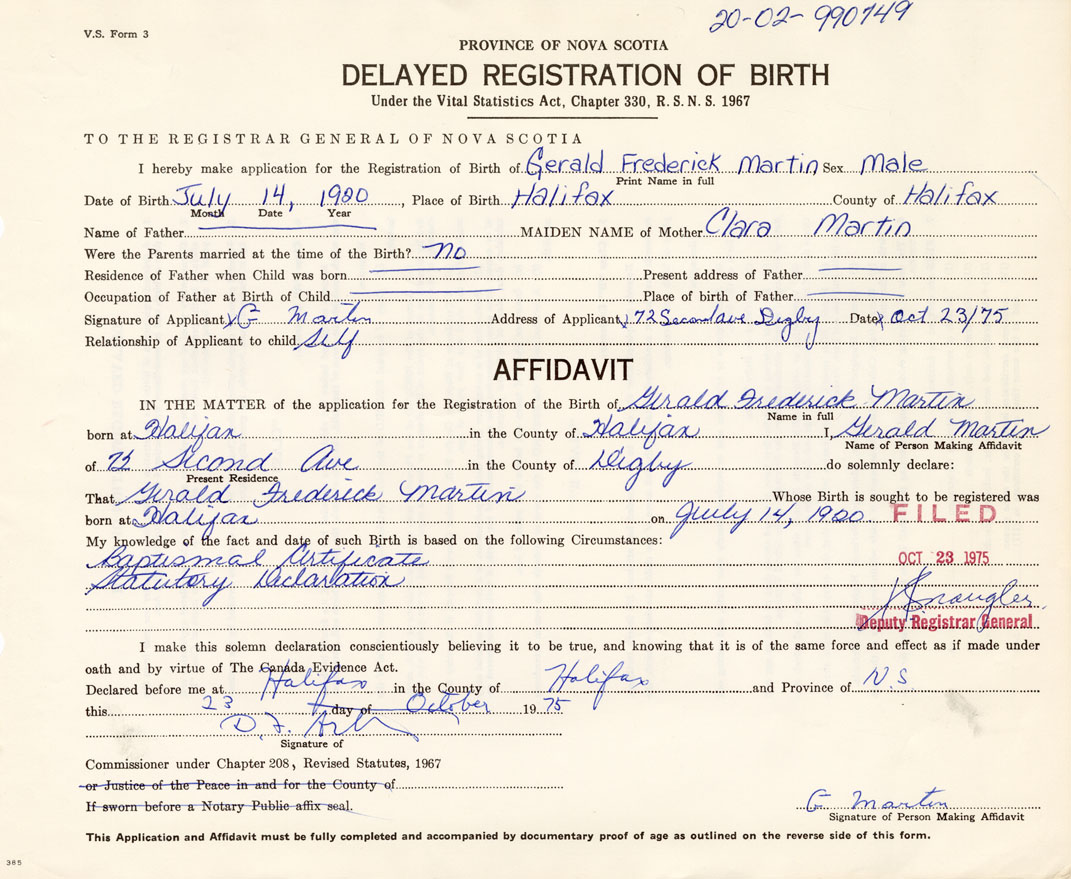 20-02-990749
V.S. Form 3
PROVINCE OF NOVA SCOTIA
DELAYED REGISTRATION OF BIRTH
Under the Vital Statistics Act, Chapter 330, R. S. N. S. 1967
TO THE REGISTRAR GENERAL OF NOVA SCOTIA
I hereby make application for the Registration of Birth of Gerald Frederick Martin Sex Male
Print Name in full
Date of Birth July 14, 1900, Place of Birth Halifax County of Halifax
Month Date Year
Name of Father MAIDEN NAME of Mother Clara Martin
Were the Parents married at the time of the Birth? No
Residence of Father when Child was born Present address of Father
Occupation of Father at Birth of Child Place of birth of Father
Signature of Applicant x G Martin Address of Applicant x 72 Second ave Digby Date x Oct 23/75
Relationship of Applicant to child Self
AFFIDAVIT
IN THE MATTER of the application for the Registration of the Birth of Gerald Frederick Martin
Name in full
born at Halifax in the County of Halifax I, Gerald Martin
Name of Person Making Affidavit
of 72 Second Ave in the County of Digby do solemnly declare:
Present Residence
That Gerald Frederick Martin Whose Birth is sought to be registered was
born at Halifax on July 14, 1900 FILED
My knowledge of the fact and date of such Birth is based on the following Circumstances:
Baptismal Certificate OCT 23 1975
Statutory Declaration
Deputy Registrar General
I make this solemn declaration conscientiously believing it to be true, and knowing that it is of the same force and effect as if made under
oath and by virtue of The Canada Evidence Act.
Declared before me at Halifax in the County of Halifax and Province of N.S.
this 23 day of October 1975
D. F.
Signature of
Commissioner under Chapter 208, Revised Statutes, 1967
or Justice of the Peace in and for the County of
If sworn before a Notary Public affix seal.
G Martin
Signature of Person Making Affidavit
This Application and Affidavit must be fully completed and accompanied by documentary proof of age as outlined on the reverse side of this form.
385